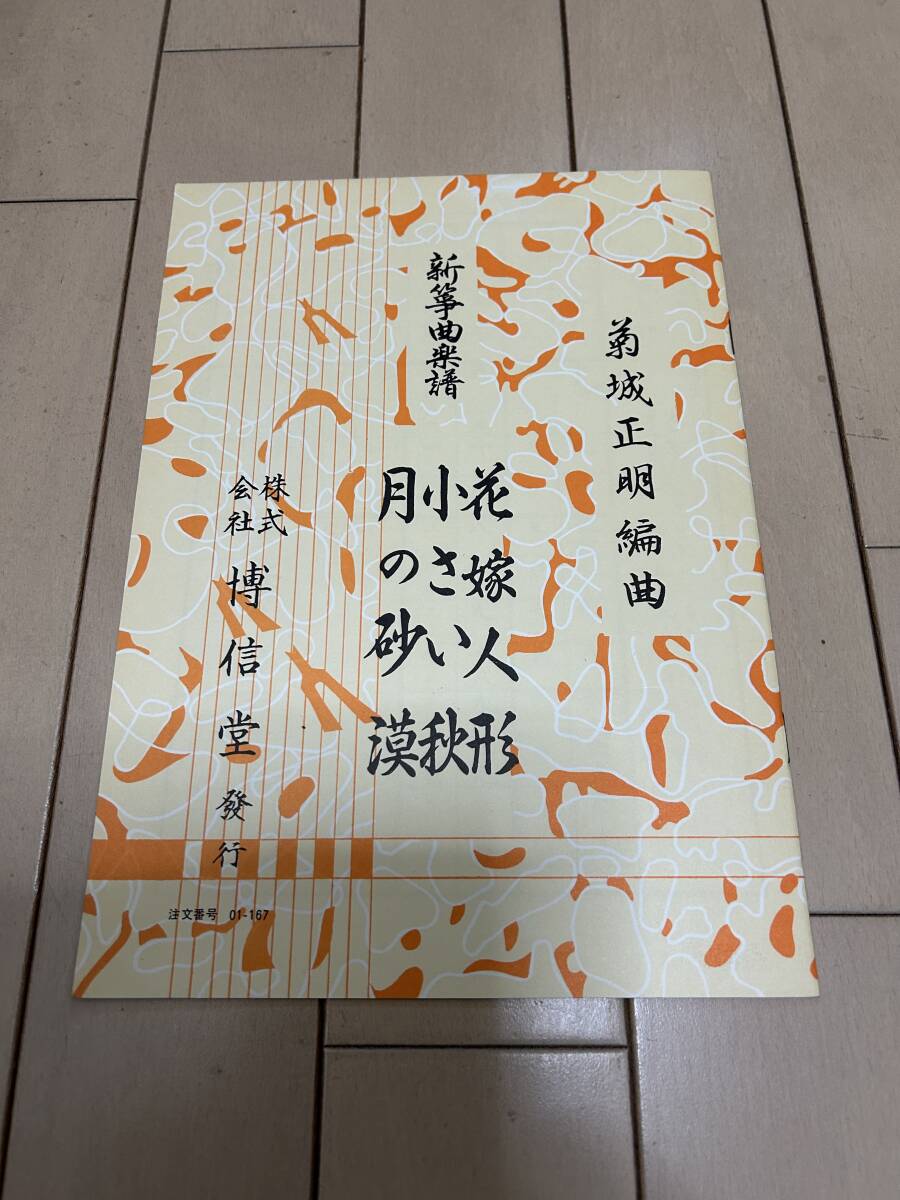 菊城正明編曲
新箏曲楽譜
花嫁人形
小さい秋
月の砂漠
株式会社
博信堂發行
注文番号 01-167